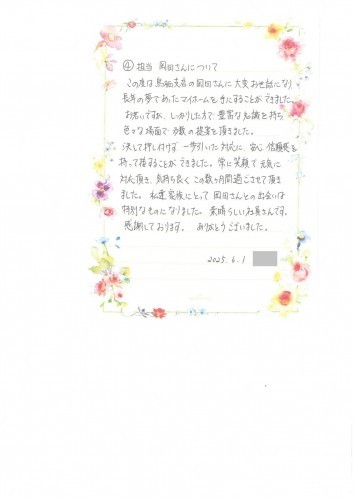 ④ 担当 岡田さんについて
この度は鳥栖支店の岡田さんに大変お世話になり
長年の夢であったマイホームを手にすることができました。
お若いですが、しっかりした方で 豊富な知識を持ち
色々な場面で 多数の提案を頂きました。
決して押し付けず 一歩引いた対応に、安心、信頼感を
持って接することができました。常に笑顔で元気に
対応頂き、気持ち良く この数ヶ月間過ごさせて頂き
ました。 私達家族にとって 岡田さんとの出会いは
特別なものになりました。素晴らしい社員さんです。
感謝しております。 ありがとうございました。
2025. 6. 1